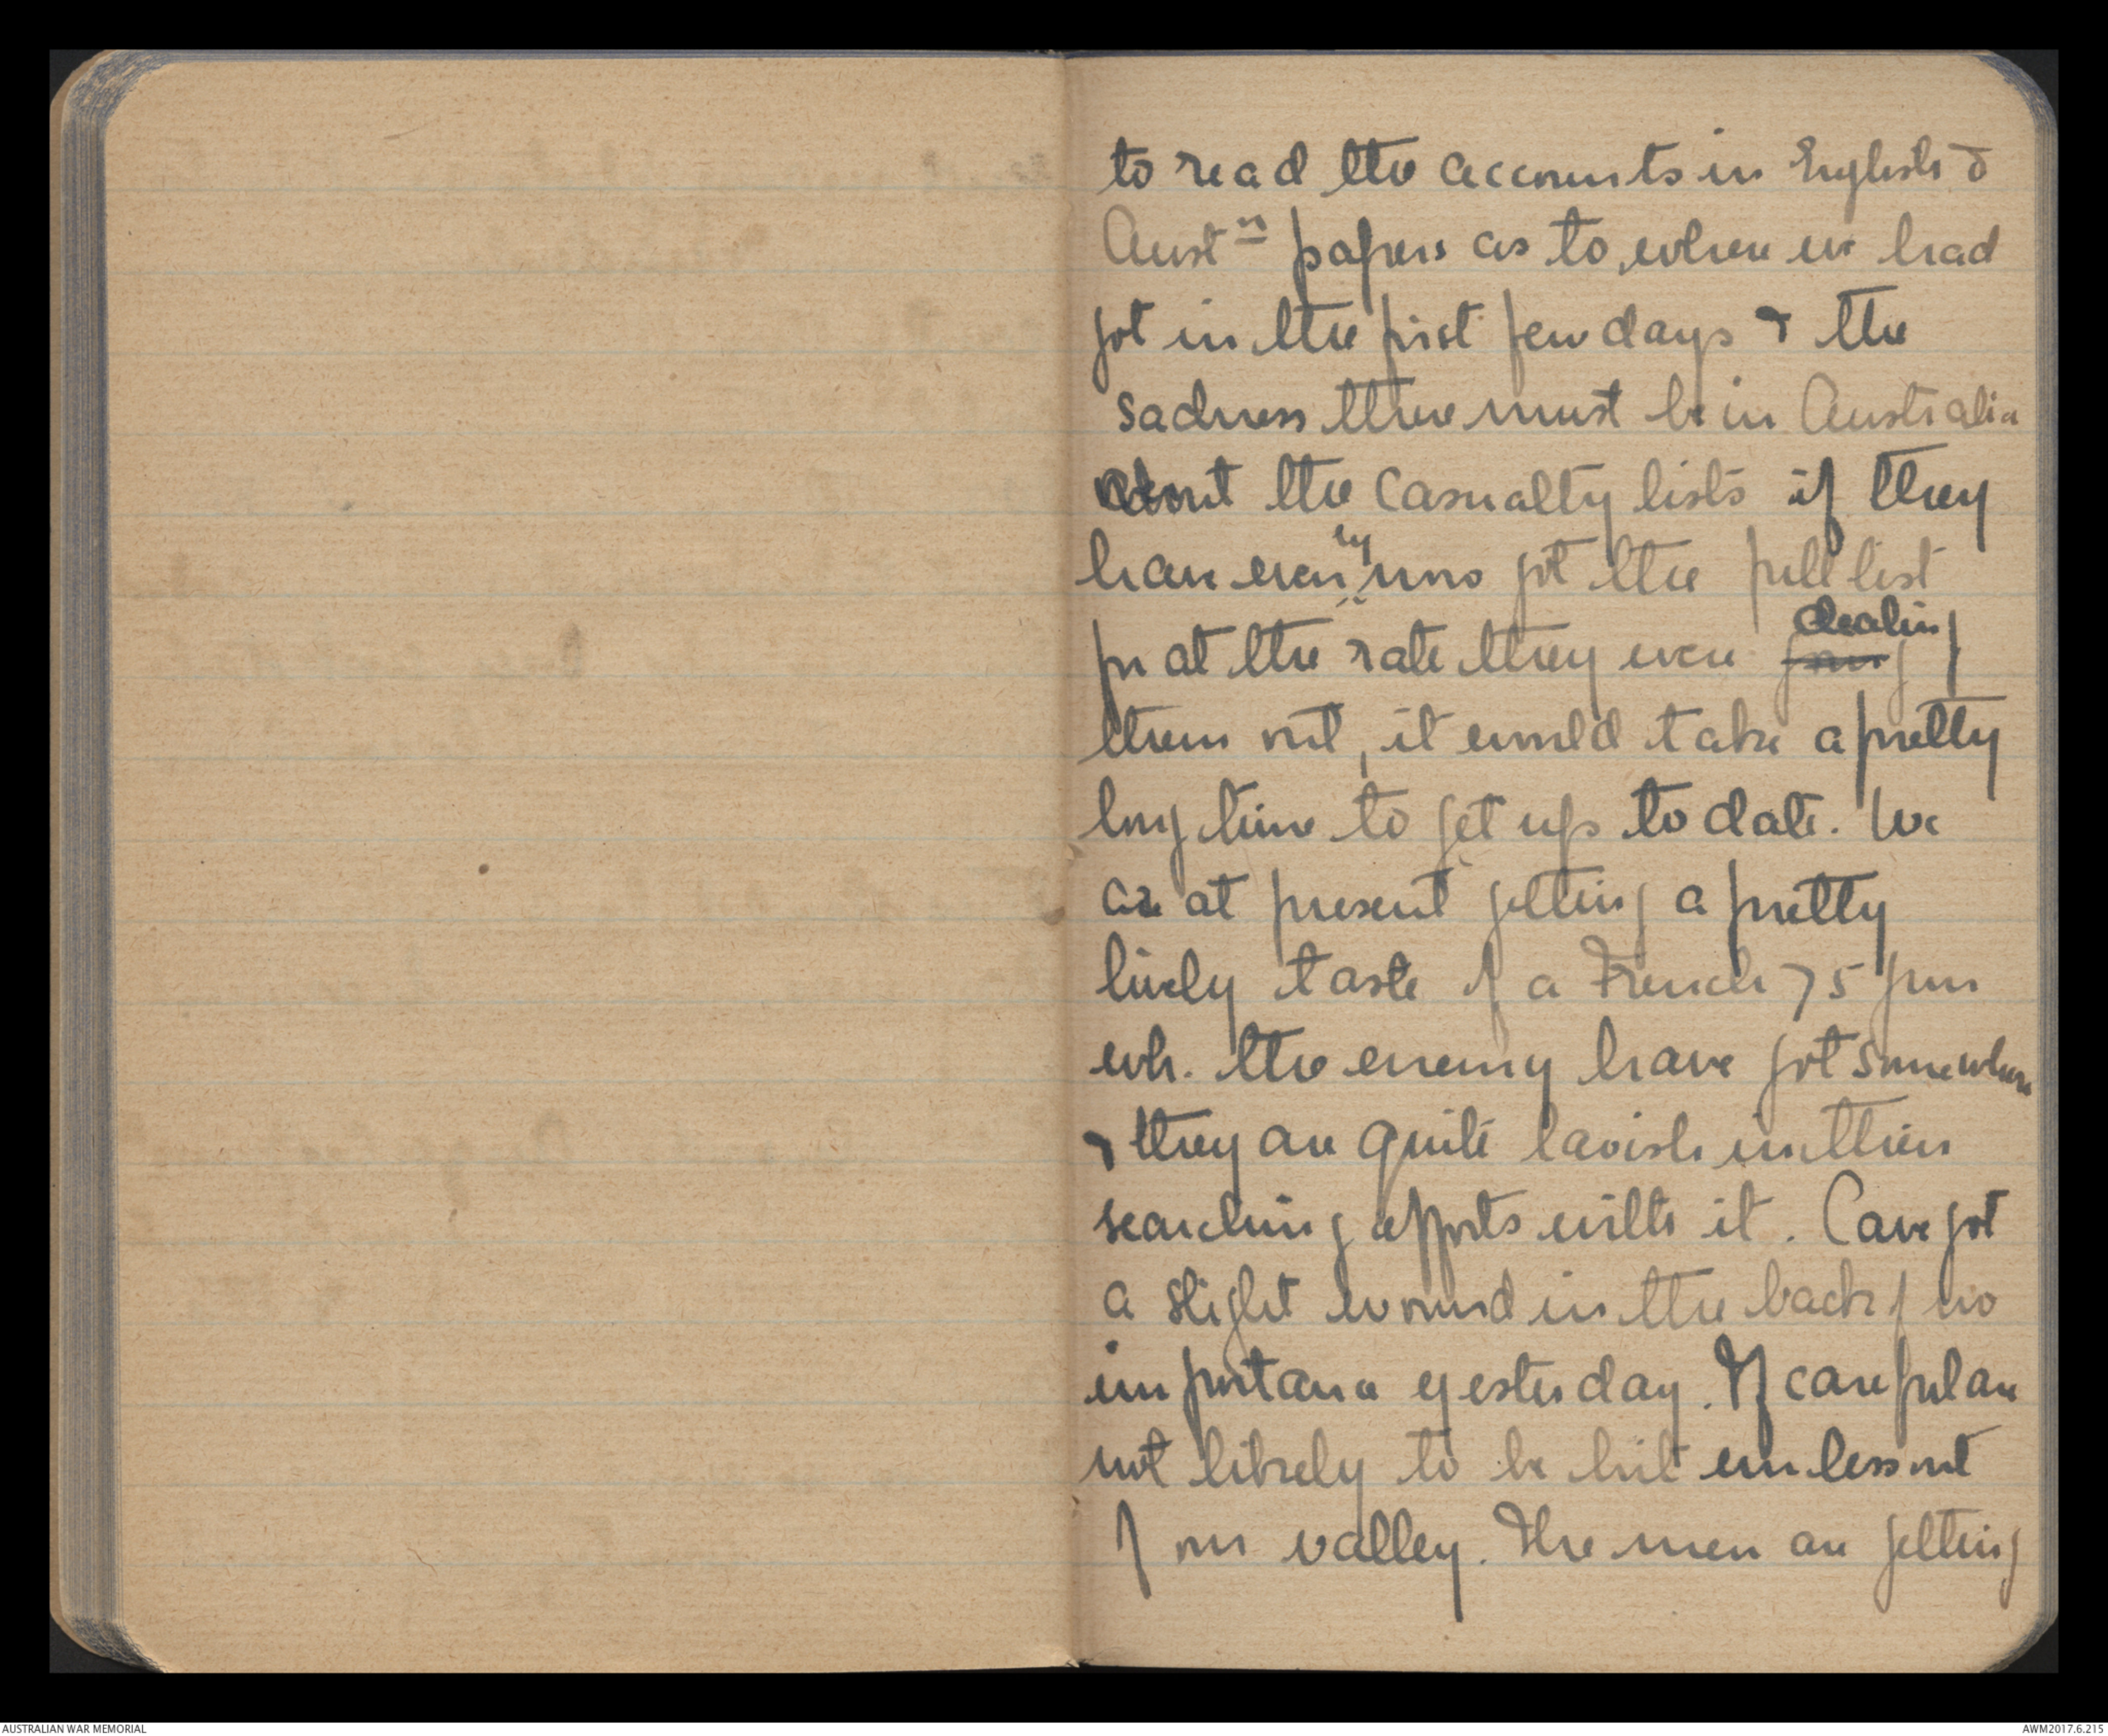 to read the accounts in English &
Austn papers as to where we had
got in the first few days & the
sadness there must be in Australia
about the casualty lists if they
have even by now got the full list
for at the rate they were going dealing
them out, it would take a pretty
long time to get up to date. We
are at present getting a pretty
lively taste of a French 75 gun
wh. the enemy have got somewhere
& they are quite lavish in their
searching efforts with it. Cave got
a slight wound in the back of no
importance yesterday. If careful are
not likely to be hit unless out
of our valley. The men are getting
AUSTRALIAN WAR MEMORIAL
AWM2017.6.215